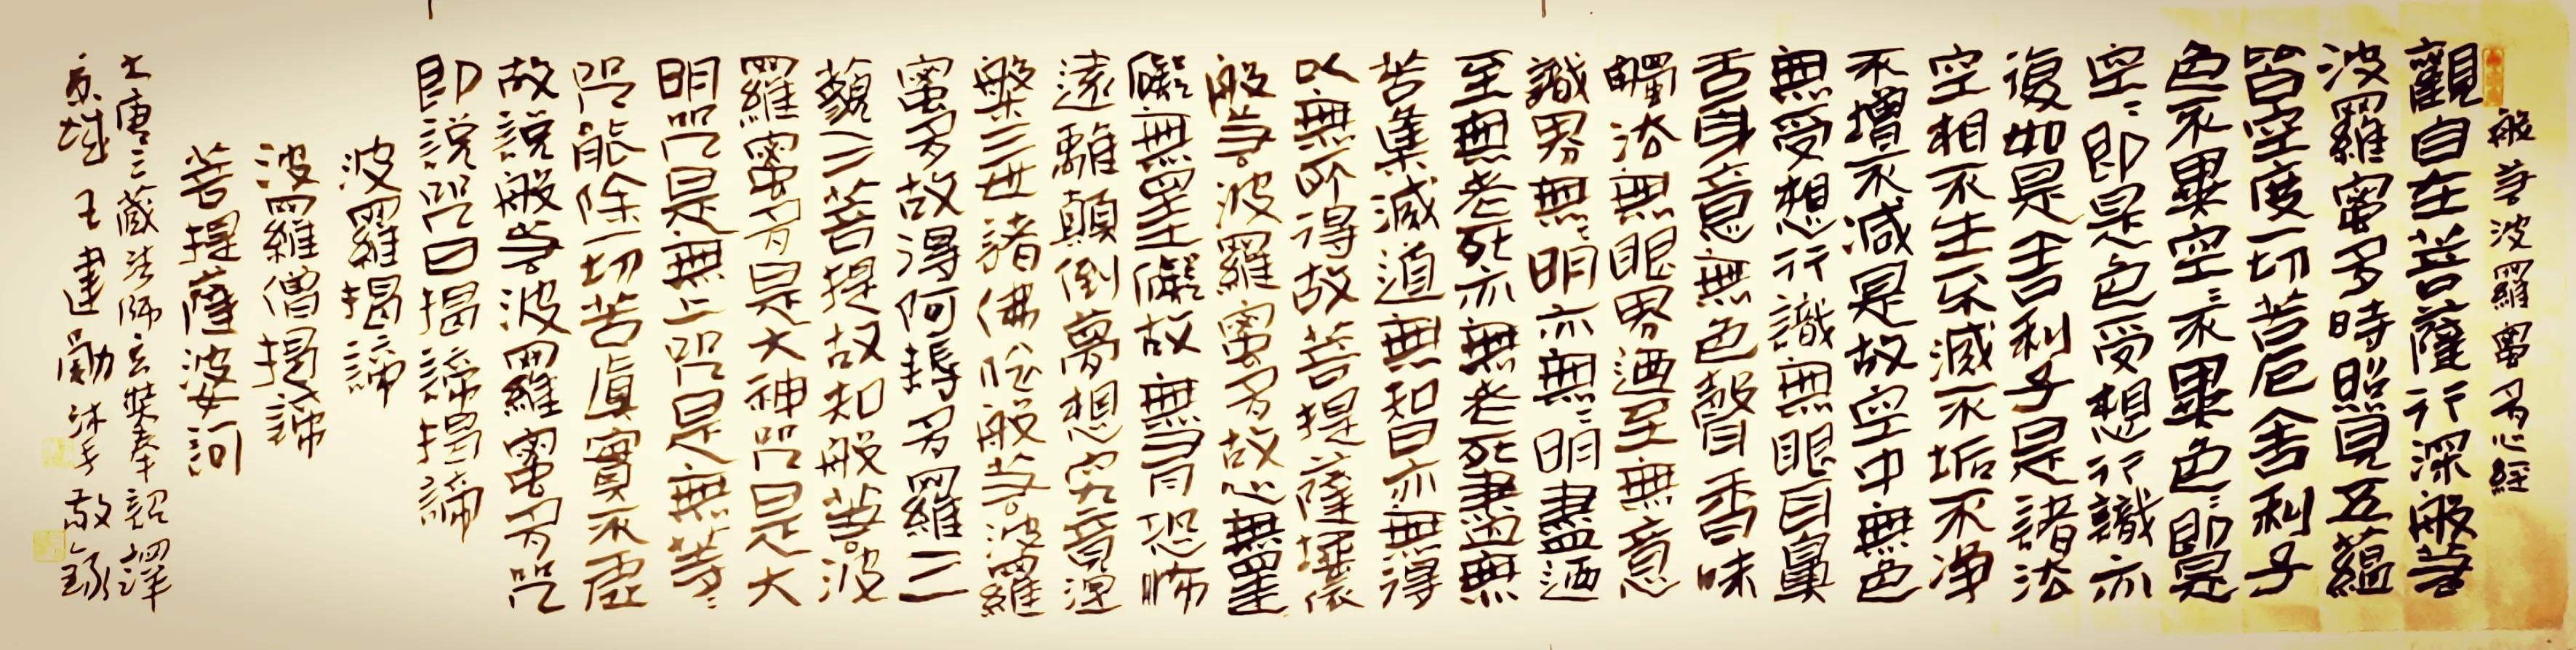 般若波羅蜜多心經
觀自在菩薩行深般若
波羅蜜多時照見五蘊
皆空度一切苦厄舍利子
色不異空〻不異色〻即是
空〻即是色受想行識亦
復如是舍利子是諸法
空相不生不滅不垢不淨
不增不減是故空中無色
無受想行識無眼耳鼻
舌身意無色聲香味
觸法無眼界迺至無意
識界無〻明亦無〻明盡迺
至無老死亦無老死盡無
苦集滅道無智亦無得
以無所得故菩提薩埵依
般若波羅蜜多故心無罣
礙無罣礙故無有恐怖
遠離顛倒夢想究竟涅
槃三世諸佛依般若波羅
蜜多故得阿耨多羅三
藐三菩提故知般若波
羅蜜多是大神咒是大
明咒是無上咒是無等〻
咒能除一切苦真實不虛
故說般若波羅蜜多咒
即說咒曰揭諦揭諦
波羅揭諦
波羅僧揭諦
菩提薩婆訶
大唐三藏法師玄奘奉詔譯
京城 王建勛沐手敬錄